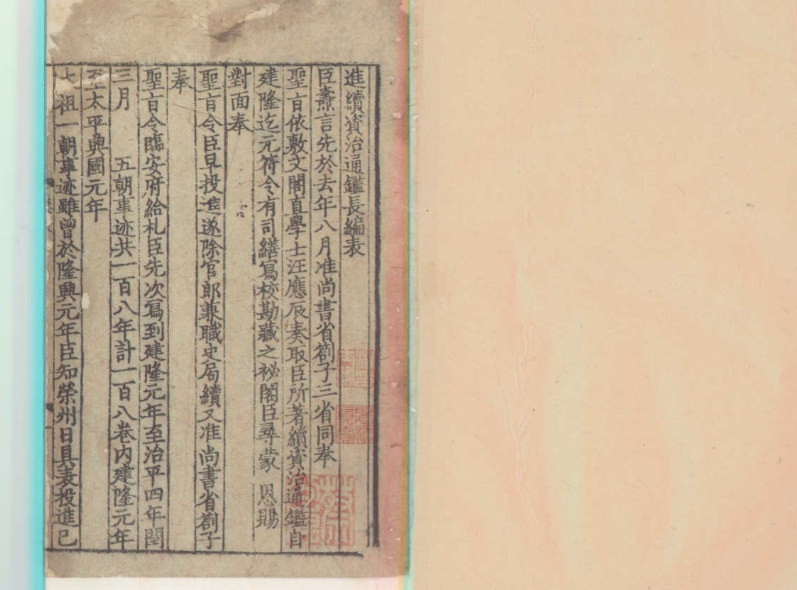 進續資治通鑑長編表
臣燾言先於去年八月准尚書省劄子三省同奉
聖旨依敷文閣直學士汪應辰奏取臣所著續資治通鑑自
建隆迄元符令有司繕寫校勘藏之祕閣臣尋蒙 恩賜
對面奉
聖旨令臣早投進遂除官郎兼職史局續又准尚書省劄子
奉
聖旨令臨安府給札臣先次寫到建隆元年至治平四年閏
三月 五朝事迹共一百八年計一百八卷内建隆元年
至太平興國元年
祖一朝事迹雖曾於隆興元年臣知榮州日具表投進已